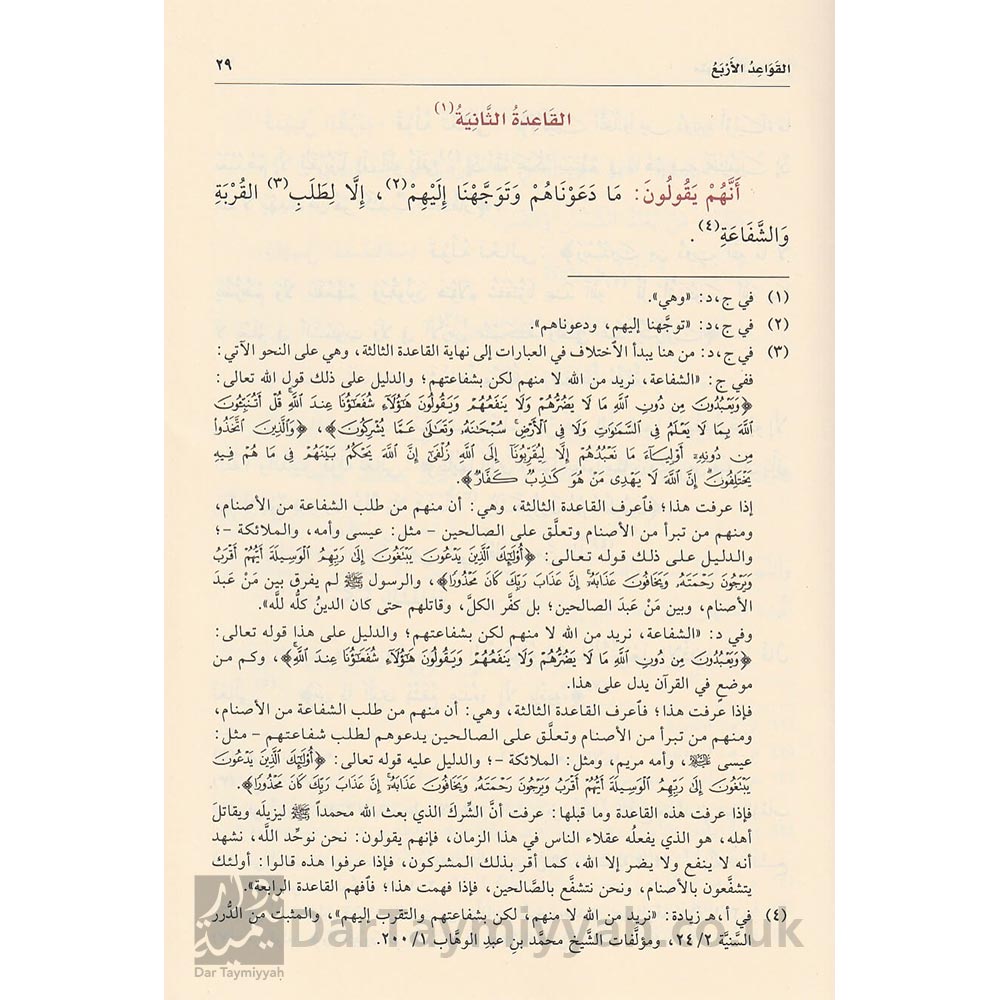 القَوَاعِدُ الأَرْبَعُ ٢٩
القَاعِدَةُ الثَّانِيَةُ(١)
أَنَّهُمْ يَقُولُونَ: مَا دَعَوْنَاهُمْ وَتَوَجَّهْنَا إِلَيْهِمْ(٢)، إِلَّا لِطَلَبِ(٣) القُرْبَةِ
وَالشَّفَاعَةِ(٤).
(١) في ج،د: «وهي».
(٢) في ج،د: «توجَّهنا إليهم، ودعوناهم».
(٣) في ج،د: من هنا يبدأ ٱلاختلاف في العبارات إلى نهاية القاعدة الثالثة، وهي على النحو الآتي:
ففي ج: «الشفاعة، نريد من الله لا منهم لكن بشفاعتهم؛ والدليل على ذلك قول الله تعالى:
﴿وَيَعْبُدُونَ مِن دُونِ ٱللَّهِ مَا لَا يَضُرُّهُمْ وَلَا يَنفَعُهُمْ وَيَقُولُونَ هَٰٓؤُلَآءِ شُفَعَٰٓؤُنَا عِندَ ٱللَّهِۚ قُلْ أَتُنَبِّـُٔونَ
ٱللَّهَ بِمَا لَا يَعْلَمُ فِي ٱلسَّمَٰوَٰتِ وَلَا فِي ٱلْأَرْضِۚ سُبْحَٰنَهُۥ وَتَعَٰلَىٰ عَمَّا يُشْرِكُونَ﴾، ﴿وَٱلَّذِينَ ٱتَّخَذُوا۟
مِن دُونِهِۦٓ أَوْلِيَآءَ مَا نَعْبُدُهُمْ إِلَّا لِيُقَرِّبُونَآ إِلَى ٱللَّهِ زُلْفَىٰٓ إِنَّ ٱللَّهَ يَحْكُمُ بَيْنَهُمْ فِي مَا هُمْ فِيهِ
يَخْتَلِفُونَۗ إِنَّ ٱللَّهَ لَا يَهْدِي مَنْ هُوَ كَٰذِبٌ كَفَّارٌ﴾.
إذا عرفت هذا؛ فٱعرف القاعدة الثالثة، وهي: أن منهم من طلب الشفاعة من الأصنام،
ومنهم من تبرأ من الأصنام وتعلَّق على الصالحين – مثل: عيسى وأمه، والملائكة –؛
والدليل على ذلك قوله تعالى: ﴿أُو۟لَٰٓئِكَ ٱلَّذِينَ يَدْعُونَ يَبْتَغُونَ إِلَىٰ رَبِّهِمُ ٱلْوَسِيلَةَ أَيُّهُمْ أَقْرَبُ
وَيَرْجُونَ رَحْمَتَهُۥ وَيَخَافُونَ عَذَابَهُۥٓۚ إِنَّ عَذَابَ رَبِّكَ كَانَ مَحْذُورًا﴾، والرسول ﷺ لم يفرق بين مَنْ عَبدَ
الأصنام، وبين مَنْ عَبدَ الصالحين؛ بل كفَّر الكلَّ، وقاتلهم حتى كان الدينُ كلُّه لله».
وفي د: «الشفاعة، نريد من الله لا منهم لكن بشفاعتهم؛ والدليل على هذا قوله تعالى:
﴿وَيَعْبُدُونَ مِن دُونِ ٱللَّهِ مَا لَا يَضُرُّهُمْ وَلَا يَنفَعُهُمْ وَيَقُولُونَ هَٰٓؤُلَآءِ شُفَعَٰٓؤُنَا عِندَ ٱللَّهِ﴾، وكم من
موضعٍ في القرآن يدل على هذا.
فإذا عرفت هذا؛ فٱعرف القاعدة الثالثة، وهي: أن منهم من طلب الشفاعة من الأصنام،
ومنهم من تبرأ من الأصنام وتعلَّق على الصالحين يدعوهم لطلب شفاعتهم – مثل:
عيسى ﷺ، وأمه مريم، ومثل: الملائكة –؛ والدليل عليه قوله تعالى: ﴿أُو۟لَٰٓئِكَ ٱلَّذِينَ يَدْعُونَ
يَبْتَغُونَ إِلَىٰ رَبِّهِمُ ٱلْوَسِيلَةَ أَيُّهُمْ أَقْرَبُ وَيَرْجُونَ رَحْمَتَهُۥ وَيَخَافُونَ عَذَابَهُۥٓۚ إِنَّ عَذَابَ رَبِّكَ كَانَ مَحْذُورًا﴾.
فإذا عرفت هذه القاعدة وما قبلها: عرفت أنَّ الشِّركَ الذي بعث الله محمداً ﷺ ليزيلَه ويقاتلَ
أهله، هو الذي يفعلُه عقلاء الناس في هذا الزمان، فإنهم يقولون: نحن نوحِّد اللَّه، نشهد
أنه لا ينفع ولا يضر إلا الله، كما أقر بذلك المشركون، فإذا عرفوا هذه قالوا: أولئك
يتشفَّعون بالأصنام، ونحن نتشفَّع بالصَّالحين، فإذا فهمت هذا؛ فٱفهم القاعدة الرابعة».
(٤) في أ،هـ زيادة: «نريد من الله لا منهم، لكن بشفاعتهم والتقرب إليهم»، والمثبت من الدُّرر
السَّنيَّة ٢٤/٢، ومؤلَّفات الشَّيخ محمَّد بنِ عبدِ الوهَّاب ٢٠٠/١.
دار تيمية
Dar Taymiyyah
DarTaymiyyah.co.uk